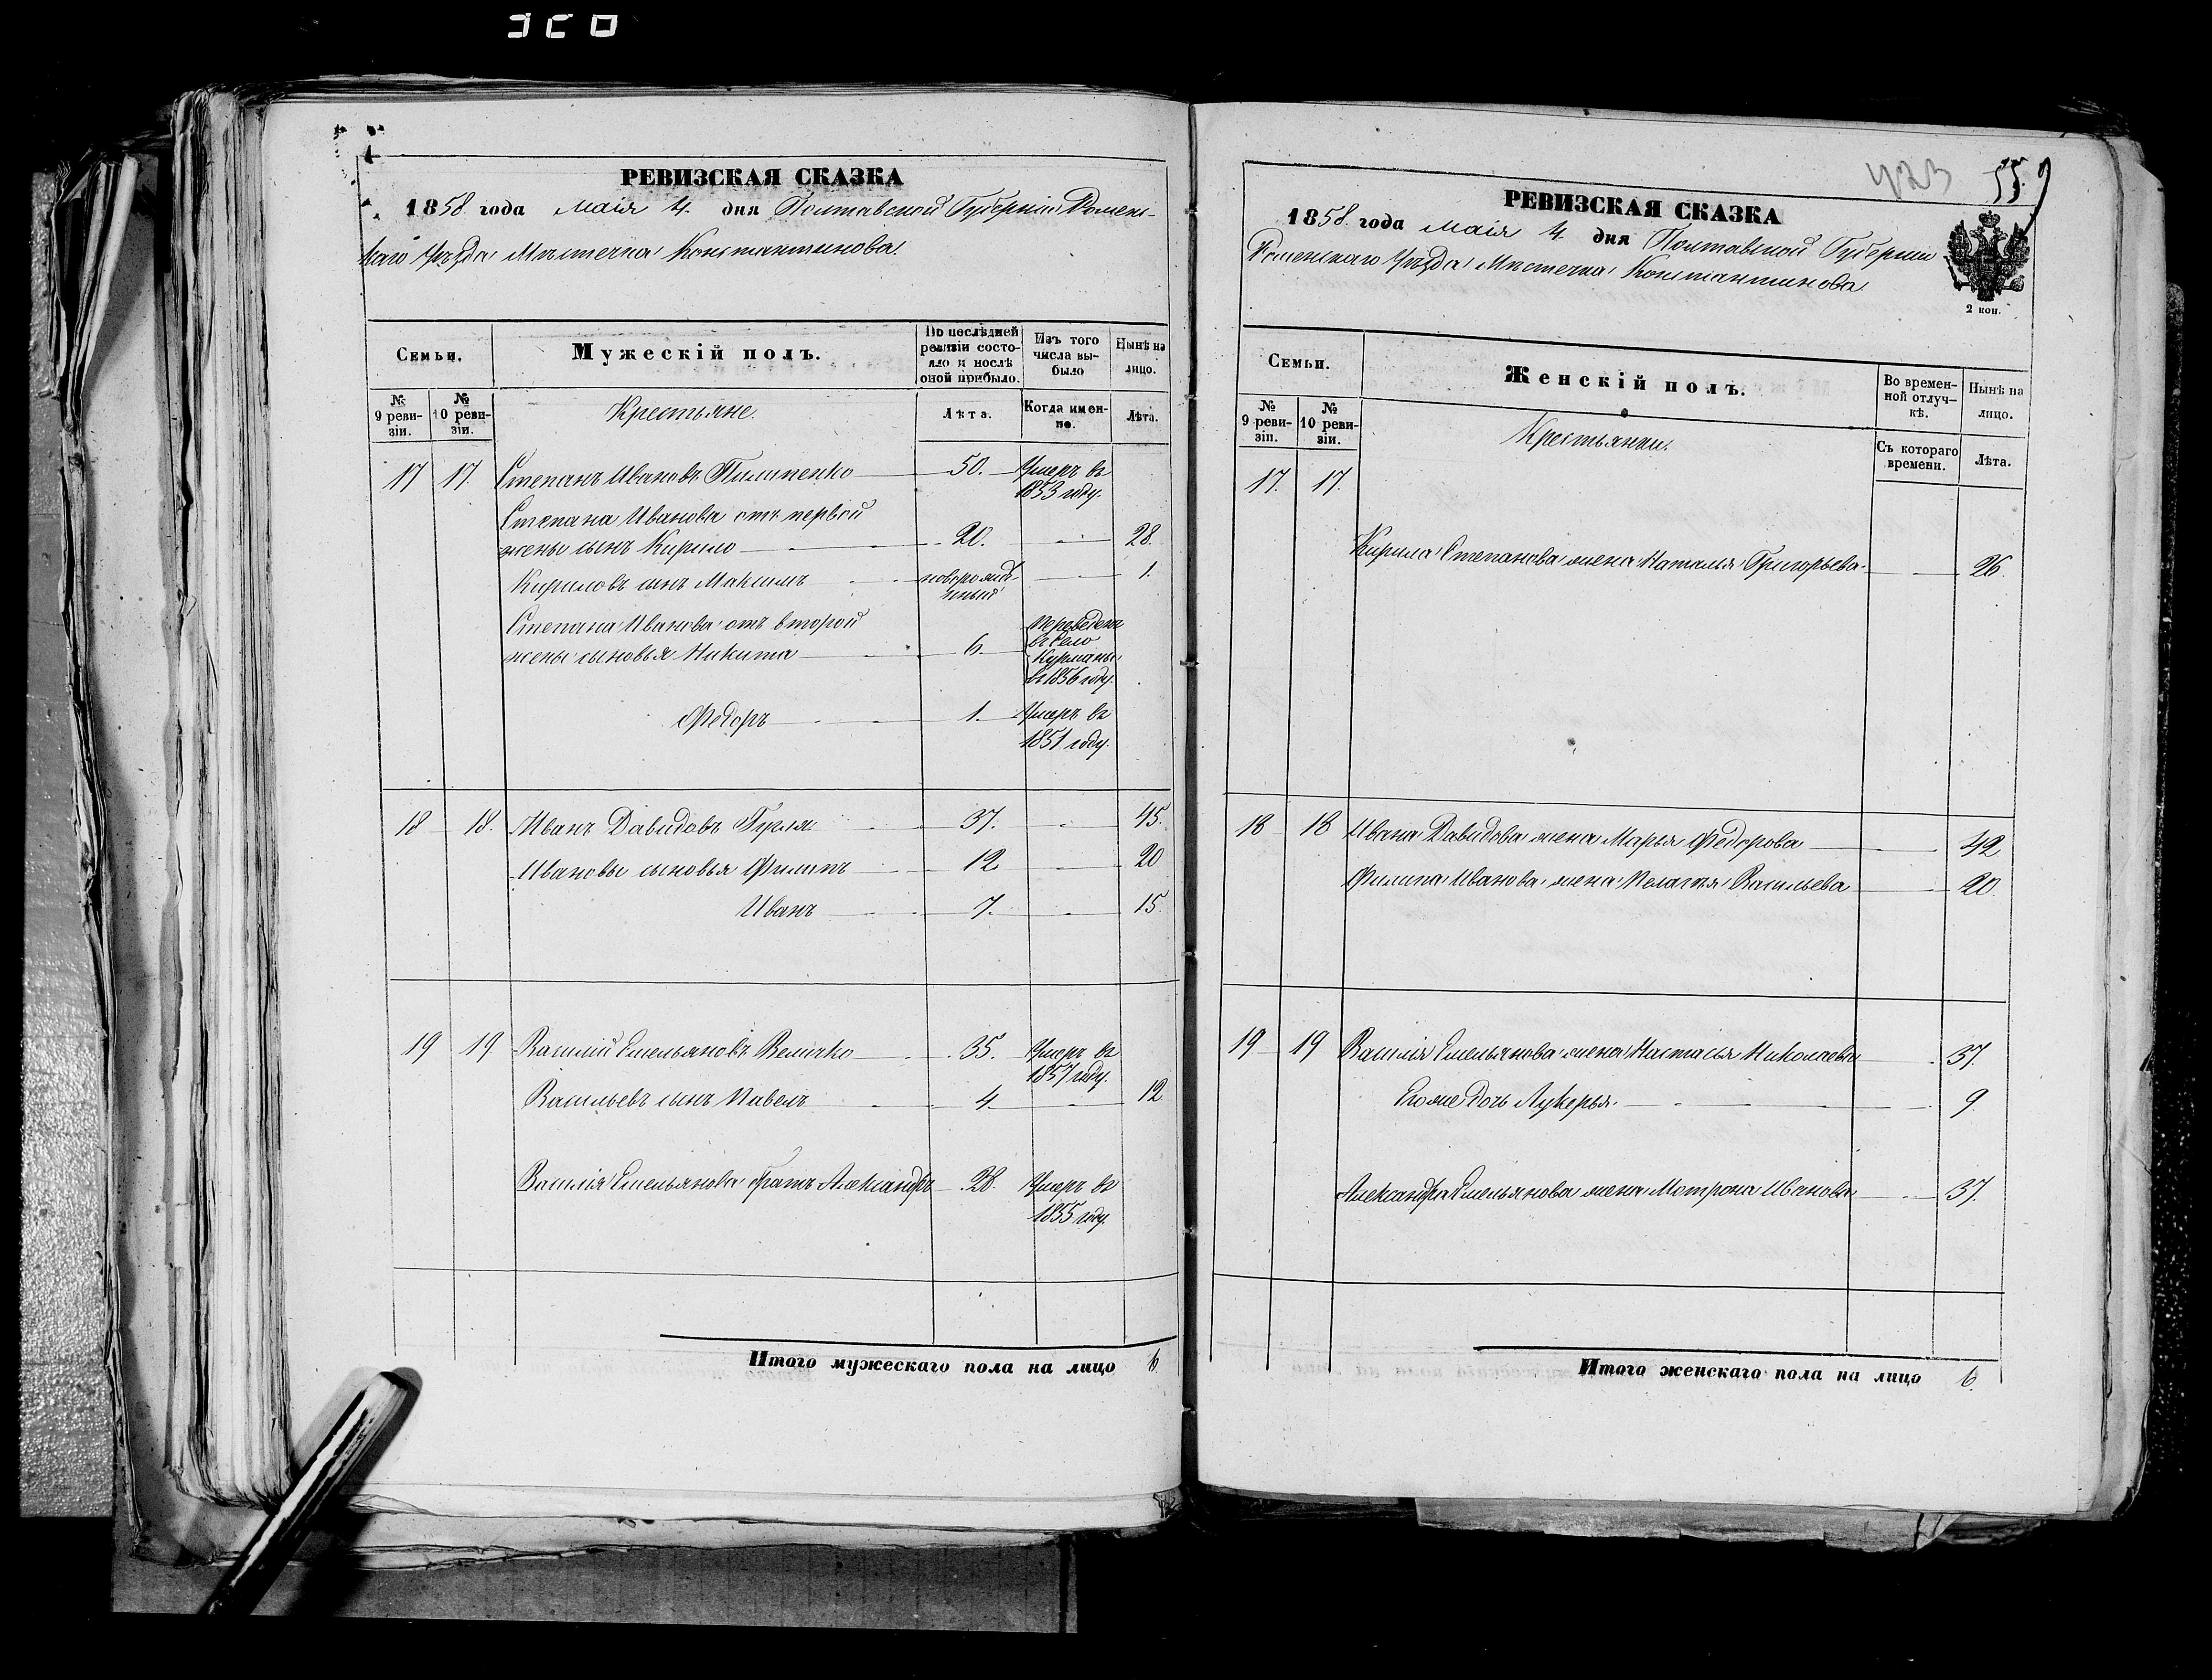 РЕВИЗСКАЯ СКАЗКА
1858 года Маія 4. дня Полтавской Губерніи Ромен-
скаго Уѣзда Мѣстечка Константинова.
Семьи.
Мужескій полъ.
По послѣдней ревизіи состо-яло и послѣ оной прибыло.
Изъ того числа вы-было
Нынѣ на лицо.
№ 9 реви-зіи.
№ 10 реви-зіи.
Крестьяне.
Лѣта.
Когда имен-но.
Лѣта.
17 17. Степанъ Ивановъ Пилипенко 50. Умеръ въ
1853 году.
Степана Иванова отъ первой
жены сынъ Кирило 20. 28.
Кириловъ сынъ Максимъ новорожд- 1.
енный
Степана Иванова отъ второй
жены сыновья Никита 6. Переведенъ
въ село
Курманы
въ 1856 году.
Федоръ 1. Умеръ въ
1851 году.
18 18. Иванъ Давидовъ Гуля 37. 45.
Ивановы сыновья Филипъ 12 20
Иванъ 7. 15.
19 19 Василій Емельяновъ Величко 35. Умеръ въ
1857 году.
Васильевъ сынъ Павелъ 4. 12
Василія Емельянова братъ Александръ 28. Умеръ въ
1855 году.
Итого мужескаго пола на лицо 6.
423 559
РЕВИЗСКАЯ СКАЗКА
1858 года Маія 4. дня Полтавской Губерніи
Роменскаго Уѣзда Мѣстечка Константинова
2 коп.
Семьи.
Женскій полъ.
Во времен-ной отлуч-кѣ.
Нынѣ на лицо.
№ 9 реви-зіи.
№ 10 реви-зіи.
Крестьянки.
Съ котораго времени.
Лѣта.
17. 17.
Кирила Степанова жена Наталья Григорьева 26.
18 18 Ивана Давидова жена Марья Федорова 42
Филипа Иванова жена Пелагея Васильева 20.
19 19 Василія Емельянова жена Настасья Николаева 37.
Егоже дочь Лукерья 9
Александра Емельянова жена Мотрона Иванова 37.
Итого женскаго пола на лицо 6.